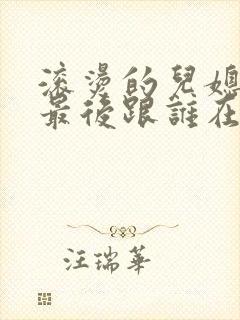 滾燙的兒媳
最後跟誰在
汪瑞華